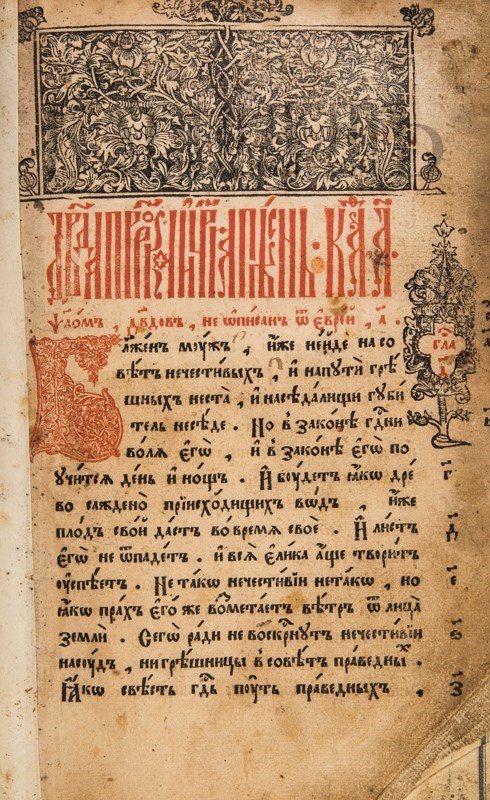 ѱало́мъ , дв҃довъ , не ѡ҆пи́санъ ѿ є҆вре́й , а҃ .
Бл҃же́нъ мꙋ́жъ , и҆́же не и҆́де на со
вѣ́тъ нечести́выхъ , и҆ напꙋти̑ грѣ́
шныхъ неста̀ , и҆ насѣда́лищи гꙋби́
тель несѣ́де . Но в зако́нѣ гдⷭ҇ни
во́лѧ є҆гѡ̀ , и҆ в зако́нѣ є҆гѡ̀ по
ꙋчи́тсѧ де́нь и҆ но́щъ . И҆ бꙋ́детъ ꙗ҆́кѡ дре́
во сажденѡ̀ при и҆схо́дищихъ во́дъ , и҆́же
пло́дъ сво́й да́стъ во́ времѧ своѐ . И҆ ли́стъ
є҆гѡ̀ не ѿпаде́тъ . и҆ всѧ̑ є҆ли́ка а҆́ще твори́тъ
ᲂу҆спѣ́етъ . Не та́кѡ нечести́вїи не та́кѡ , но
ꙗ҆́кѡ пра́хъ є҆го́же возмета́етъ вѣ́тръ ѿ лица̀
землѝ . Сегѡ̀ ра́ди не воскрⷭ҇нꙋтъ нечести́вїи
на сꙋ́дъ , ни грѣ́шницы в совѣ́тъ пра́ведныⷯ .
Ꙗ҆́кѡ свѣ́сть гдⷭ҇ь пꙋ́ть пра́ведныхъ ,
сла
г҃
д҃
є҃
ѕ҃
з҃